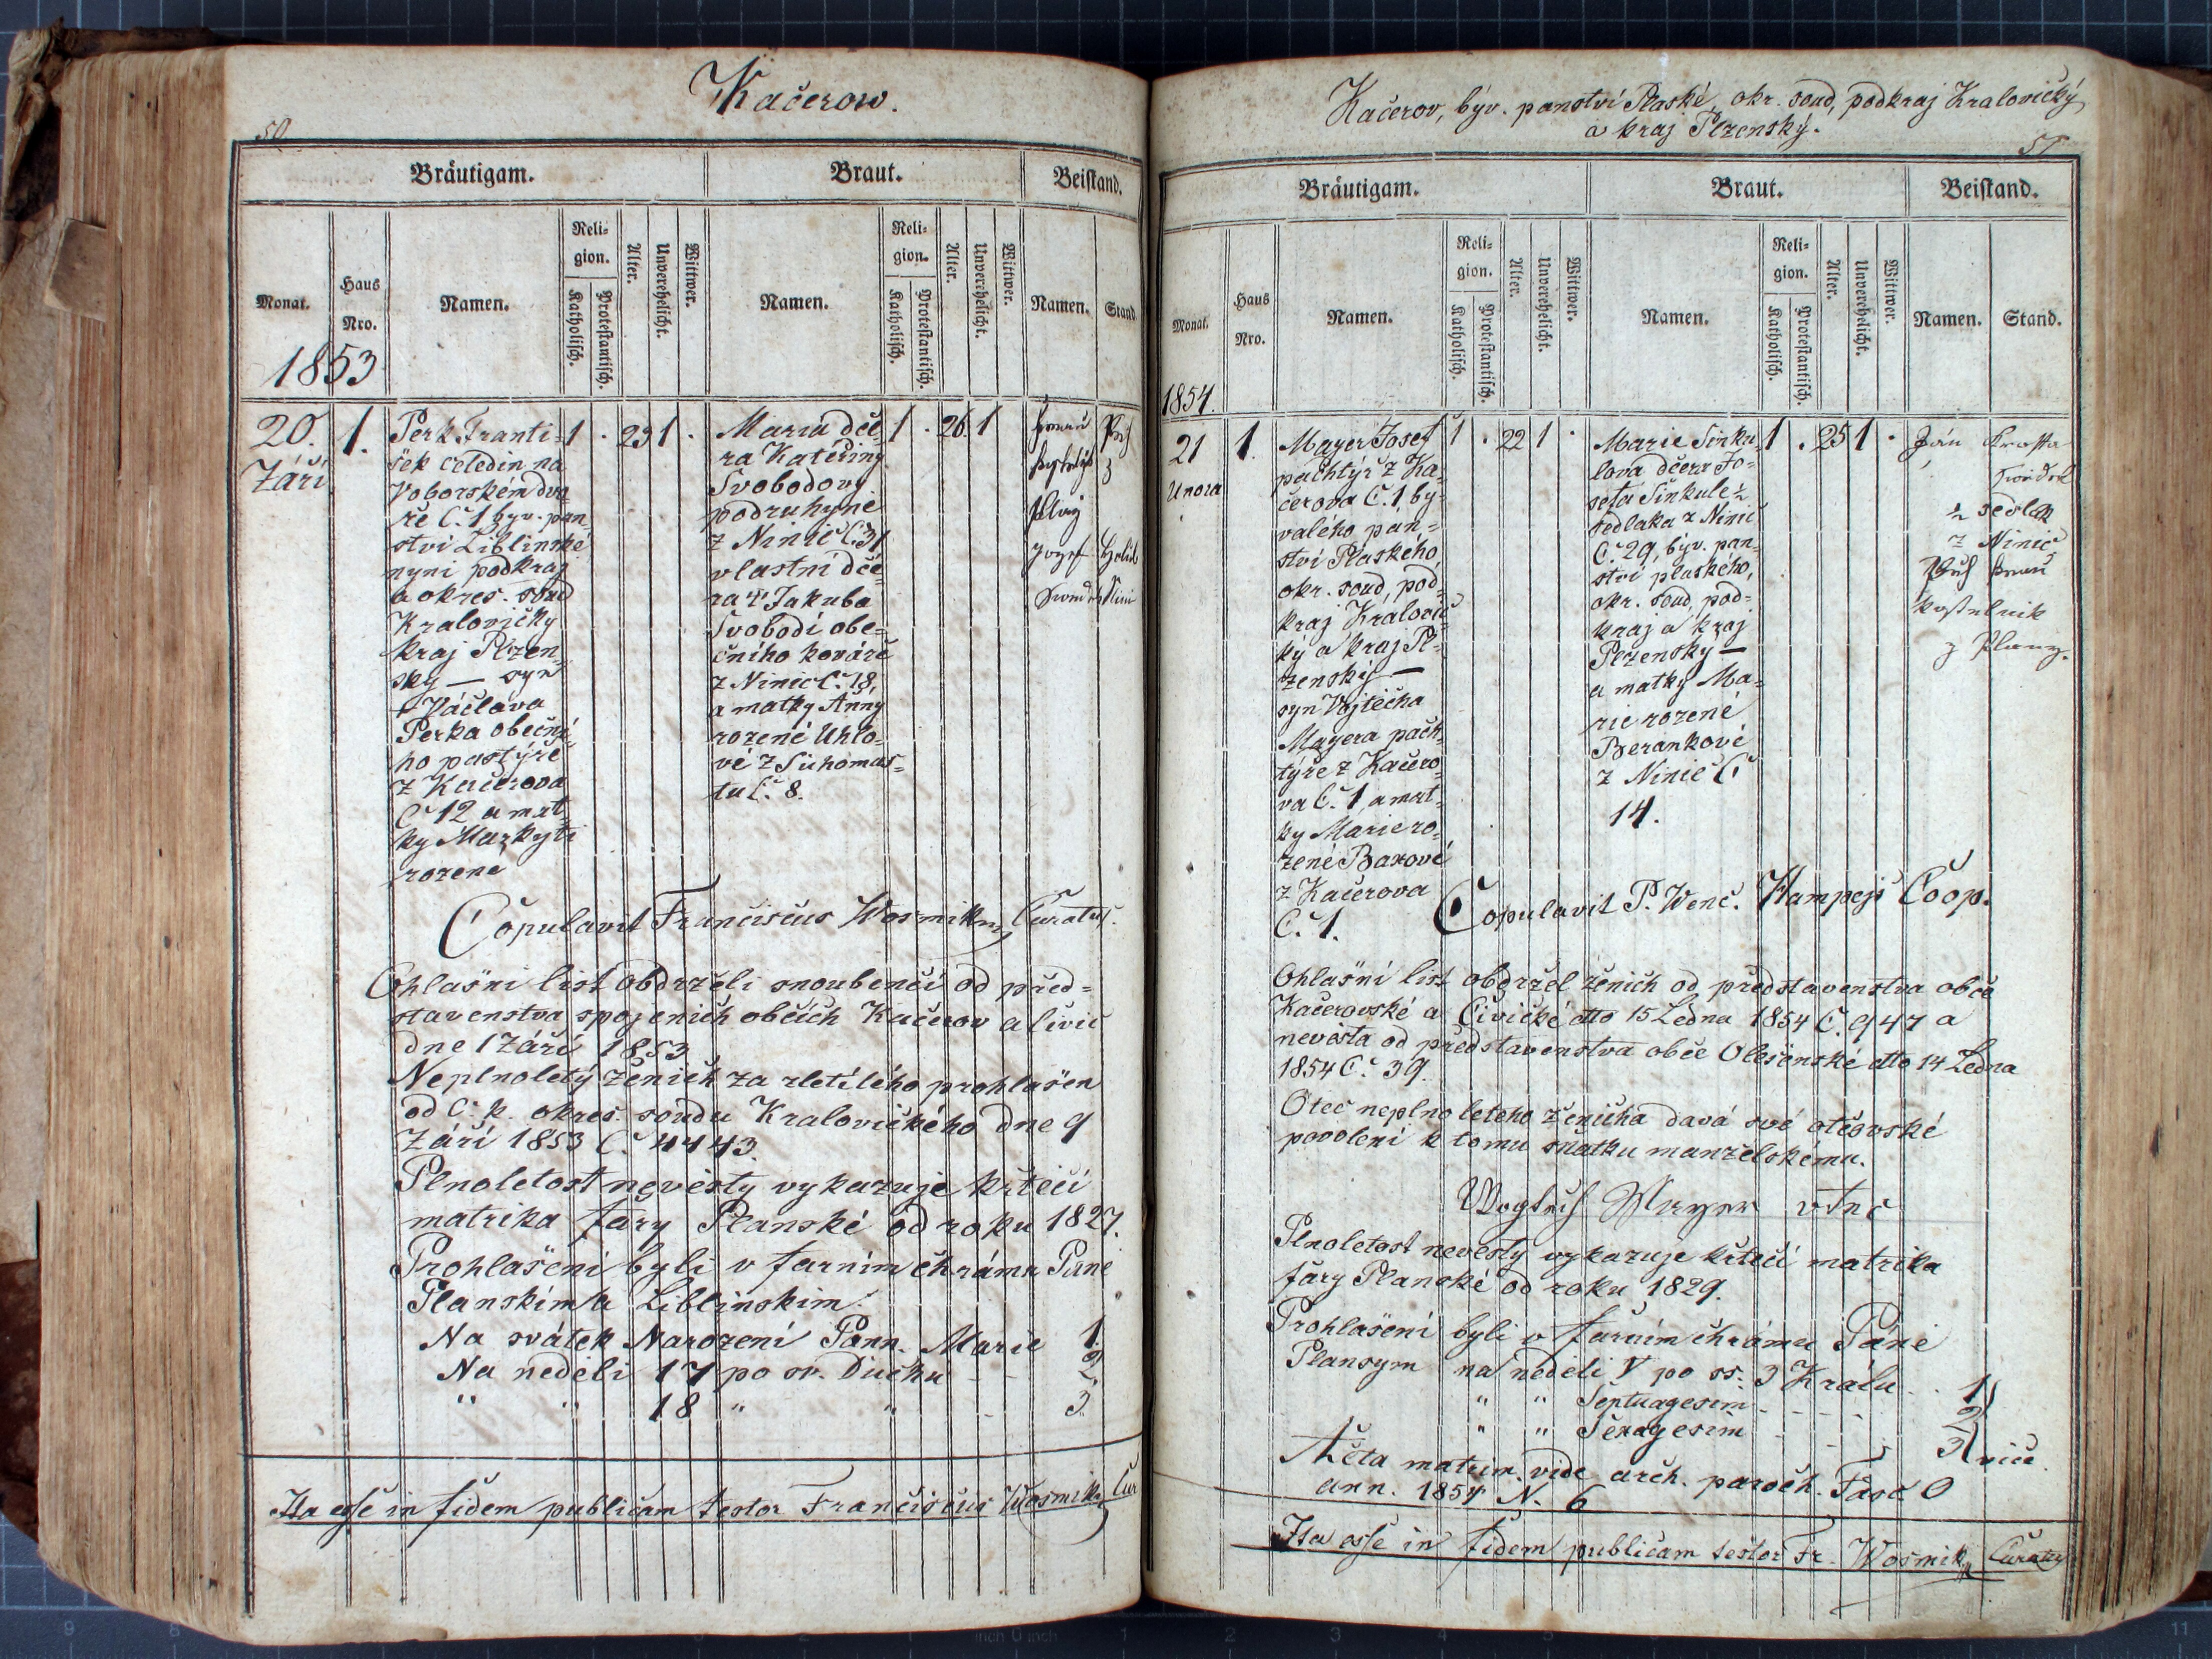 Kačerow.
50
Bräutigam.
Braut.
Beistand.
Monat.
Haus Nro.
Namen.
Religion.
Katholisch.
Protestantisch.
Alter.
Unverehelicht.
Wittwer.
Namen.
Religion.
Katholisch.
Protestantisch.
Alter.
Unverehelicht.
Wittwer.
Namen.
Stand.
1853
20.
Září
1.
Perk Franti-
šek čeledin na
Voborském dvo-
ře Č. 1 byv. pan-
ství Liblinské
nyni podkraj
a okres. soud
Kralovičky
kraj Plzen-
sky — syn
† Václava
Perka obečni-
ho pastýře
z Kačerova
Č 12 a mat-
ky Markyti
rozené
1 . 23 1 .
Maria dče-
ra Kateřiny
Svobodovy
podruhyně
z Ninic Č. 31
vlastní dče-
ra † Jakuba
Svobodi obe-
čního kováře
z Ninic Č. 18,
a matky Anny
rozené Uhlo-
vé z Suhomas-
tu Č. 8.
1 . 26. 1
Jozef
Copulavit Franciscus Wosmik Curatus.
Ohlašni list obdrželi snoubenči od před-
stavenstva spojenich občich Kačerov a Civic
dne 1 Září 1853
Neplnoletý ženich za zletilého prohlašen
od C. k. okres. soudu Kralovického dne 9
Září 1853 Č. 4443.
Plnoletost nevěsty vykazuje křtečí
matrika fary Planské od roku 1827.
Prohlašeni byli v farním chrámu Páně
Planskim a Liblinskim.
Na svátek Narozeni Pann. Marie 1.
Na neděli 17 po sv. Duchu - - 2.
" " 18 " " - 3.
Ita esse in fidem publicam testor Franciscus Wosmik Cur
Kačerov, býv. panství Plaské, okr. soud, podkraj Kralovický
a kraj Plzenský.
51
Bräutigam.
Braut.
Beistand.
Monat.
Haus Nro.
Namen.
Religion.
Katholisch.
Protestantisch.
Alter.
Unverehelicht.
Wittwer.
Namen.
Religion.
Katholisch.
Protestantisch.
Alter.
Unverehelicht.
Wittwer.
Namen.
Stand.
1854.
21
Unora
1.
Mayer Josef
pachtýř z Ka-
čerova Č. 1, by-
valého pan-
ství Plaského,
okr. soud, pod-
kraj Kralovic-
ký a kraj Pl-
zenský —
syn Vojtěcha
Mayera pach-
týře z Kačero-
va Č. 1, a mat-
ky Marie ro-
zené Baxové
z Kačerova
Č. 1.
1 . 22 1 .
Marie Sinku-
lova dčera Jo-
sefa Sinkule
sedlaka z Ninic
Č. 29, býv. pan-
ství plaského,
okr. soud, pod-
kraj a kraj
Plzensky —
a matky Ma-
rie rozené
Berankové
z Ninic Č
14.
1 . 25 1 .
Ján
sedlak
z Ninic
kostelnik
z Plany.
Copulavit P. Wenc. Hampejs Coop.
Ohlašní list obdržel ženich od představenstva obce
Kačerovské a Civické dtto 15 Ledna 1854 Č. 947 a
nevěsta od představenstva obce Olešenské dtto 14 Ledna
1854 Č. 39.
Otec neplnoletého ženicha davá své otcovské
povoleni k tomu sňatku manželskému.
Plnoletost nevěsty vykazuje křtečí matrika
fary Planské od roku 1829.
Prohlašeni byli v farním chrámu Páně
Plansym na neděli V po ss. 3 Králu . . 1
" " Septuagesim - - - 2
" " Sexagesim - - 3
Acta matrim. vide arch. paroch. Fasc. O
ann. 1854 N. 6
Ita esse in fidem publicam testor Fr. Wosmik Curatus